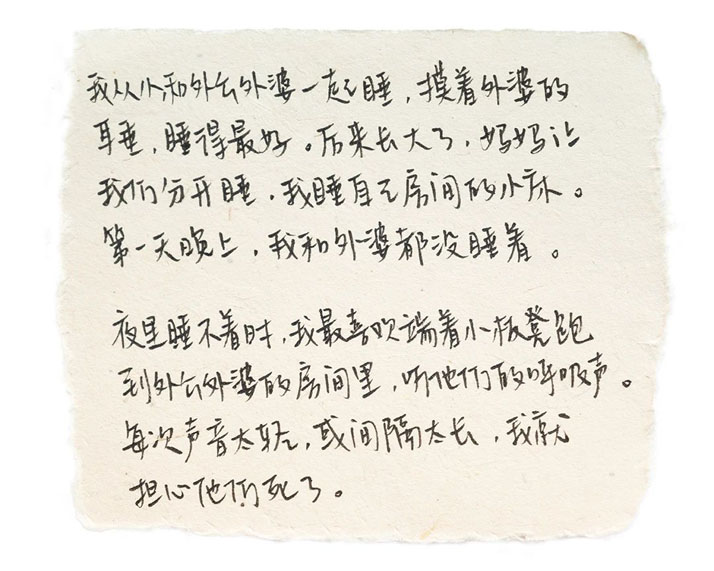 我从小和外公外婆一起睡，摸着外婆的
耳垂，睡得最好。后来长大了，妈妈让
我们分开睡，我睡自己房间的小床。
第一天晚上，我和外婆都没睡着。
夜里睡不着时，我最喜欢端着小板凳跑
到外公外婆的房间里，听他们的呼吸声。
每次声音太轻，或间隔太长，我就
担心他们死了。